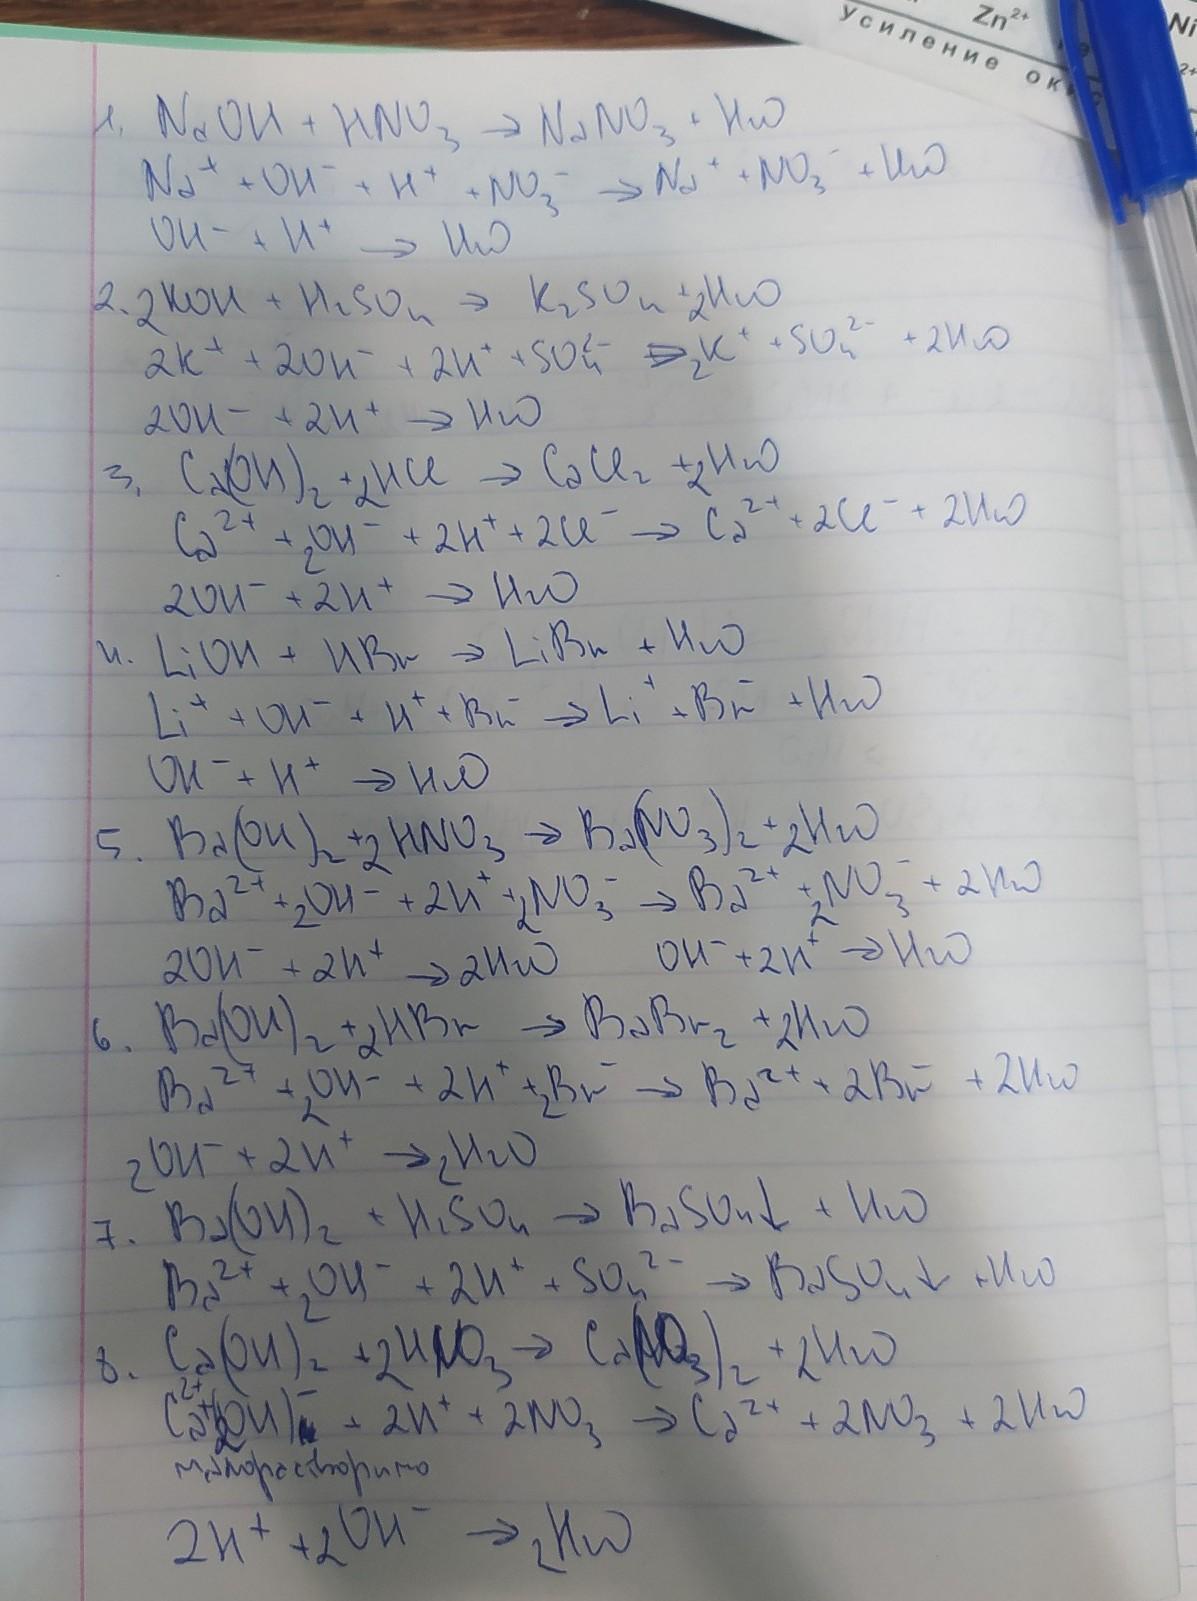 Zn²⁺
Ni
усиление оки
2+
1. NaOH + HNO₃ → NaNO₃ + H₂O
Na⁺ + OH⁻ + H⁺ + NO₃⁻ → Na⁺ + NO₃⁻ + H₂O
OH⁻ + H⁺ → H₂O
2. 2KOH + H₂SO₄ → K₂SO₄ + 2H₂O
2K⁺ + 2OH⁻ + 2H⁺ + SO₄²⁻ → 2K⁺ + SO₄²⁻ + 2H₂O
2OH⁻ + 2H⁺ → H₂O
3. Ca(OH)₂ + 2HCl → CaCl₂ + 2H₂O
Ca²⁺ + 2OH⁻ + 2H⁺ + 2Cl⁻ → Ca²⁺ + 2Cl⁻ + 2H₂O
2OH⁻ + 2H⁺ → H₂O
4. LiOH + HBr → LiBr + H₂O
Li⁺ + OH⁻ + H⁺ + Br⁻ → Li⁺ + Br⁻ + H₂O
OH⁻ + H⁺ → H₂O
5. Ba(OH)₂ + 2HNO₃ → Ba(NO₃)₂ + 2H₂O
Ba²⁺ + 2OH⁻ + 2H⁺ + 2NO₃⁻ → Ba²⁺ + 2NO₃⁻ + 2H₂O
2OH⁻ + 2H⁺ → 2H₂O OH⁻ + 2H⁺ → H₂O
6. Ba(OH)₂ + 2HBr → BaBr₂ + 2H₂O
Ba²⁺ + 2OH⁻ + 2H⁺ + 2Br⁻ → Ba²⁺ + 2Br⁻ + 2H₂O
2OH⁻ + 2H⁺ → 2H₂O
7. Ba(OH)₂ + H₂SO₄ → BaSO₄↓ + H₂O
Ba²⁺ + 2OH⁻ + 2H⁺ + SO₄²⁻ → BaSO₄↓ + H₂O
8. Ca(OH)₂ + 2HNO₃ → Ca(NO₃)₂ + 2H₂O
Ca²⁺ + 2(OH)⁻ + 2H⁺ + 2NO₃ → Ca²⁺ + 2NO₃ + 2H₂O
малорастворимо
2H⁺ + 2OH⁻ → 2H₂O